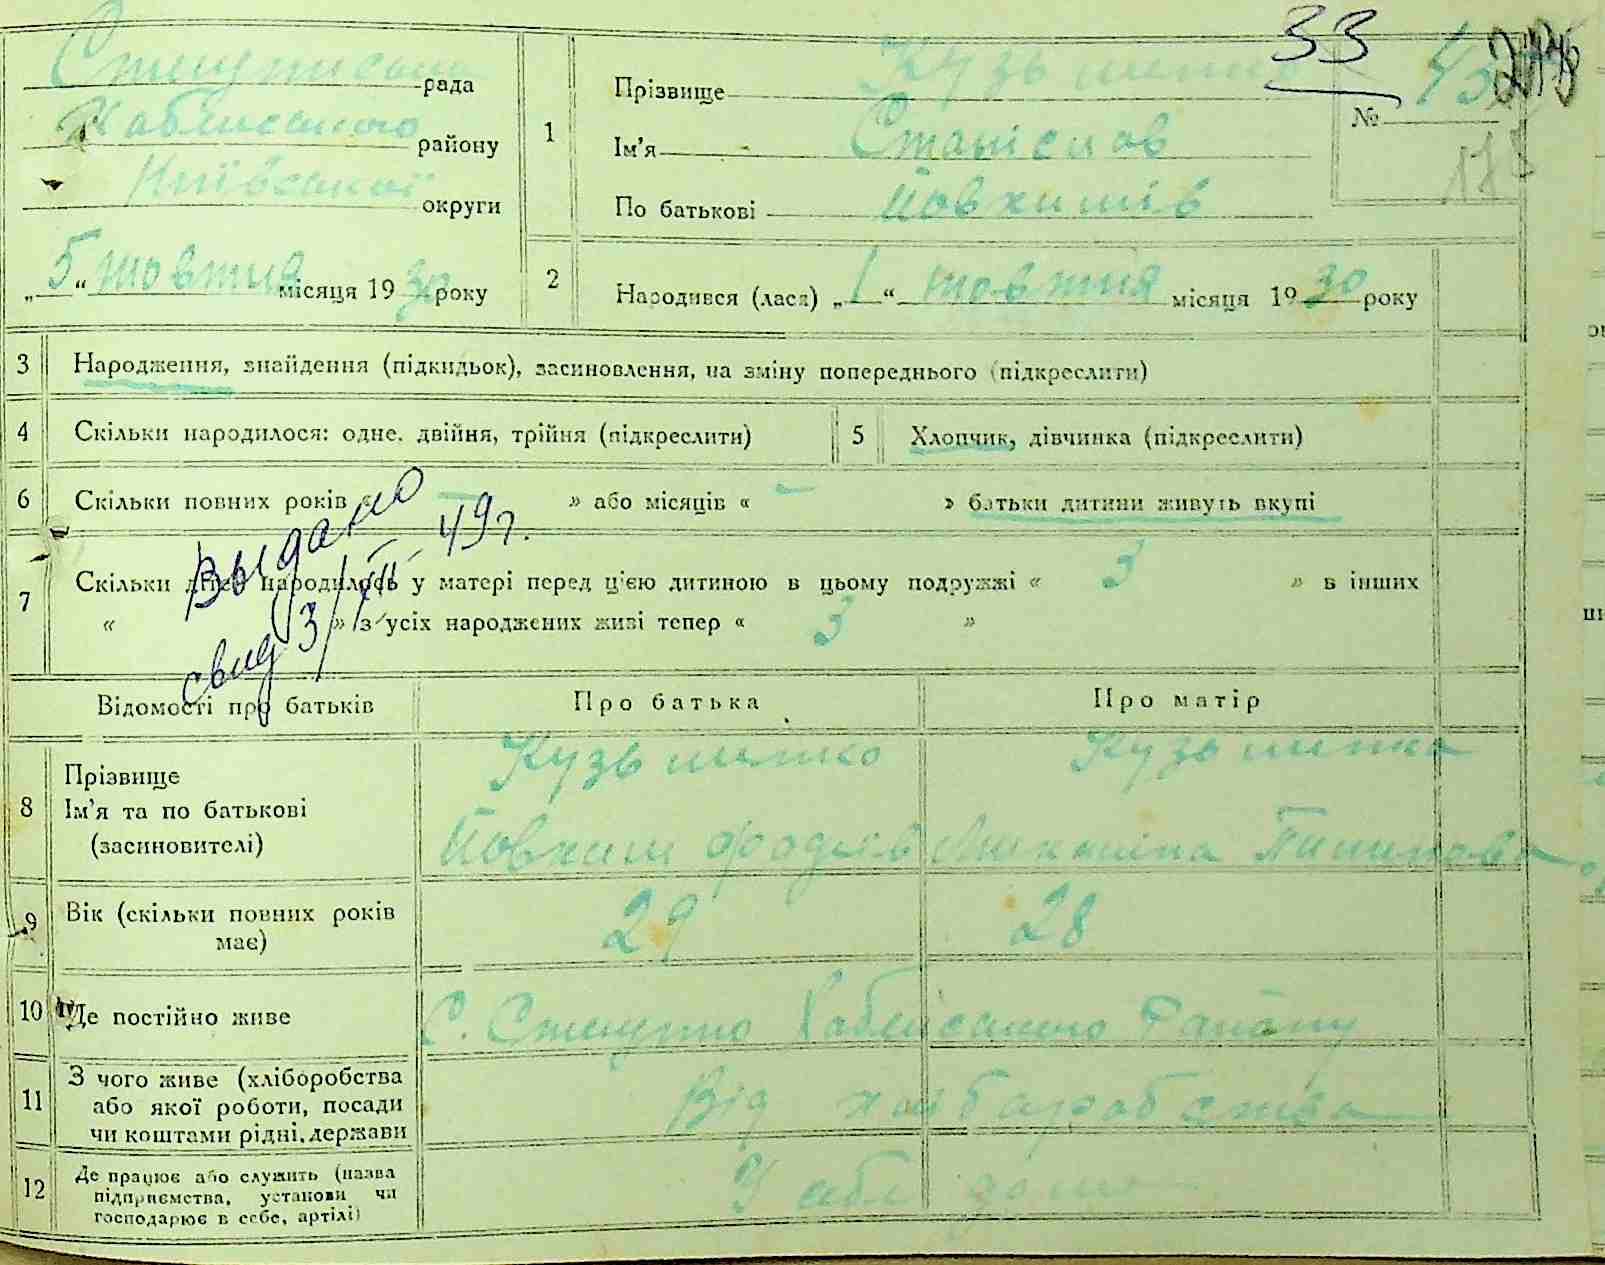 33
рада
Прізвище Кузьменко
№
району
1
Ім'я Станіслав
Київської округи
По батькові Йовхимів
„5“ жовтня місяця 1930 року
2
Народився (лася) „1“ жовтня місяця 1930 року
3 Народження, знайдення (підкидьок), засиновлення, на зміну попереднього (підкреслити)
4 Скільки народилося: одне, двійня, трійня (підкреслити)
5 Хлопчик, дівчинка (підкреслити)
6 Скільки повних років « – » або місяців « – » батьки дитини живуть вкупі
Выдано
свид 3/XII 49г.
7 Скільки дітей народилось у матері перед цією дитиною в цьому подружжі « 3 » в інших
« » з усіх народжених живі тепер « 3 »
Відомості про батьків Про батька Про матір
8 Прізвище Кузьменко Кузьменко
Ім'я та по батькові Йовхим
(засиновителі)
9 Вік (скільки повних років має) 29 28
10 Де постійно живе С. Району
11 З чого живе (хліборобства
або якої роботи, посади
чи коштами рідні, держави
Від хліборобства
12 Де працює або служить (назва
підприємства, установи чи
господарює в себе, артілі)